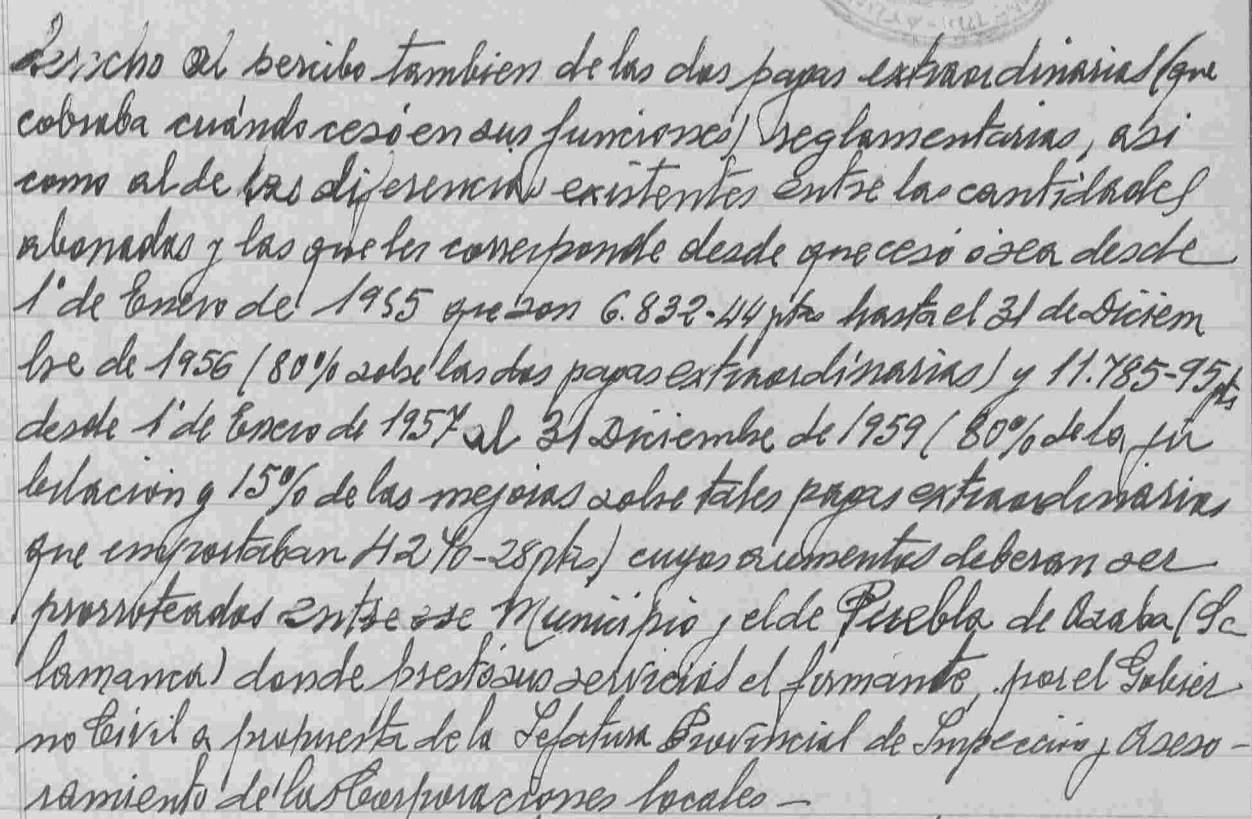 derecho al percibo tambien de las dos pagas extraordinarias (que
cobraba cuándo cesó en sus funciones) reglamentarias, asi
como al de las diferencias existentes entre las cantidades
abonadas y las que les corresponde desde que cesó ó sea desde
1º de Enero de 1955 que son 6.832-44 ptas hasta el 31 de Diciem
bre de 1956 (80% sobre las dos pagas extraordinarias) y 11.785-95 pts
desde 1º de Enero de 1957 al 31 Diciembre de 1959 (80% de la ju
bilacion y 15% de las mejoras sobre tales pagas extraordinarias
que importaban 4240-28 ptas) cuyos aumentos deberan ser
prorroteados entre ese Municipio y el de Puebla de Azaba (Sa
lamanca) donde prestó sus servicios el firmante, por el Gobier
no Civil a propuesta de la Jefatura Provincial de Inspección y Aseso-
ramiento de las Corporaciones locales —